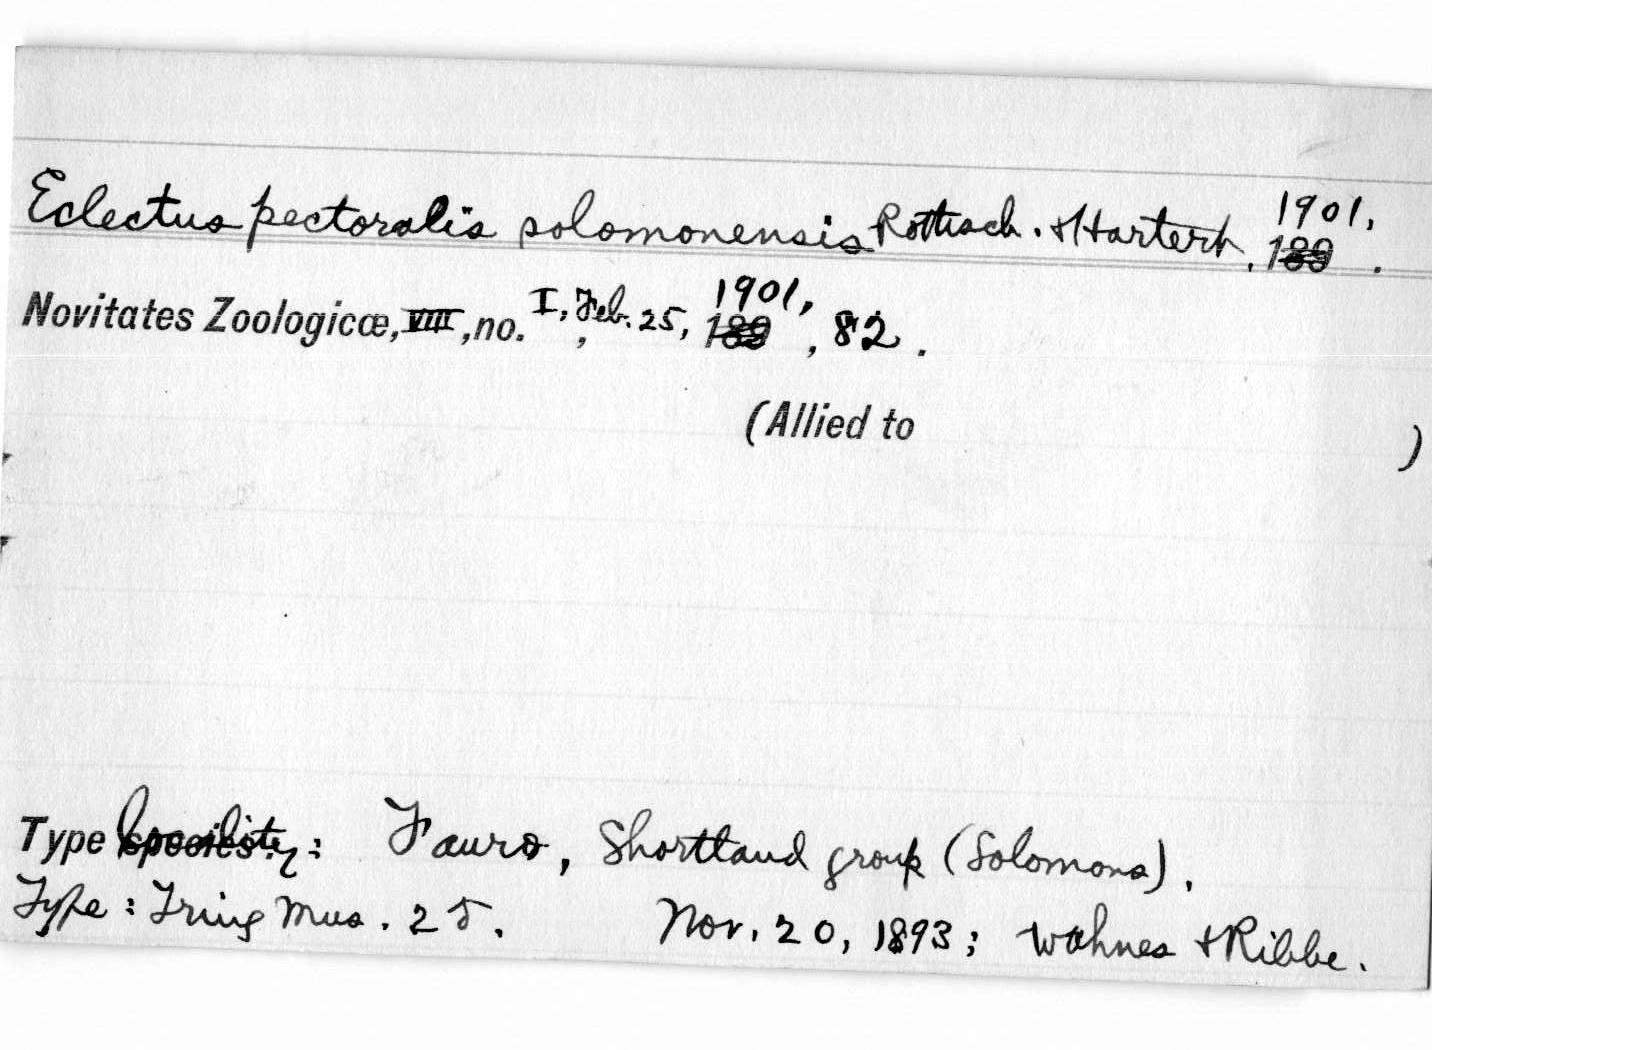 Eclectus pectoralis solomonensis Rothsch. & Hartert, 189 1901, .
Novitates Zoologicæ, VIII, no. I, Feb. 25, 189 1901, , 82.
(Allied to )
Type species: locality: Fauro, Shortland group (Solomons).
Type: Tring Mus. 25. Nov. 20, 1893; Wahnes & Ribbe.